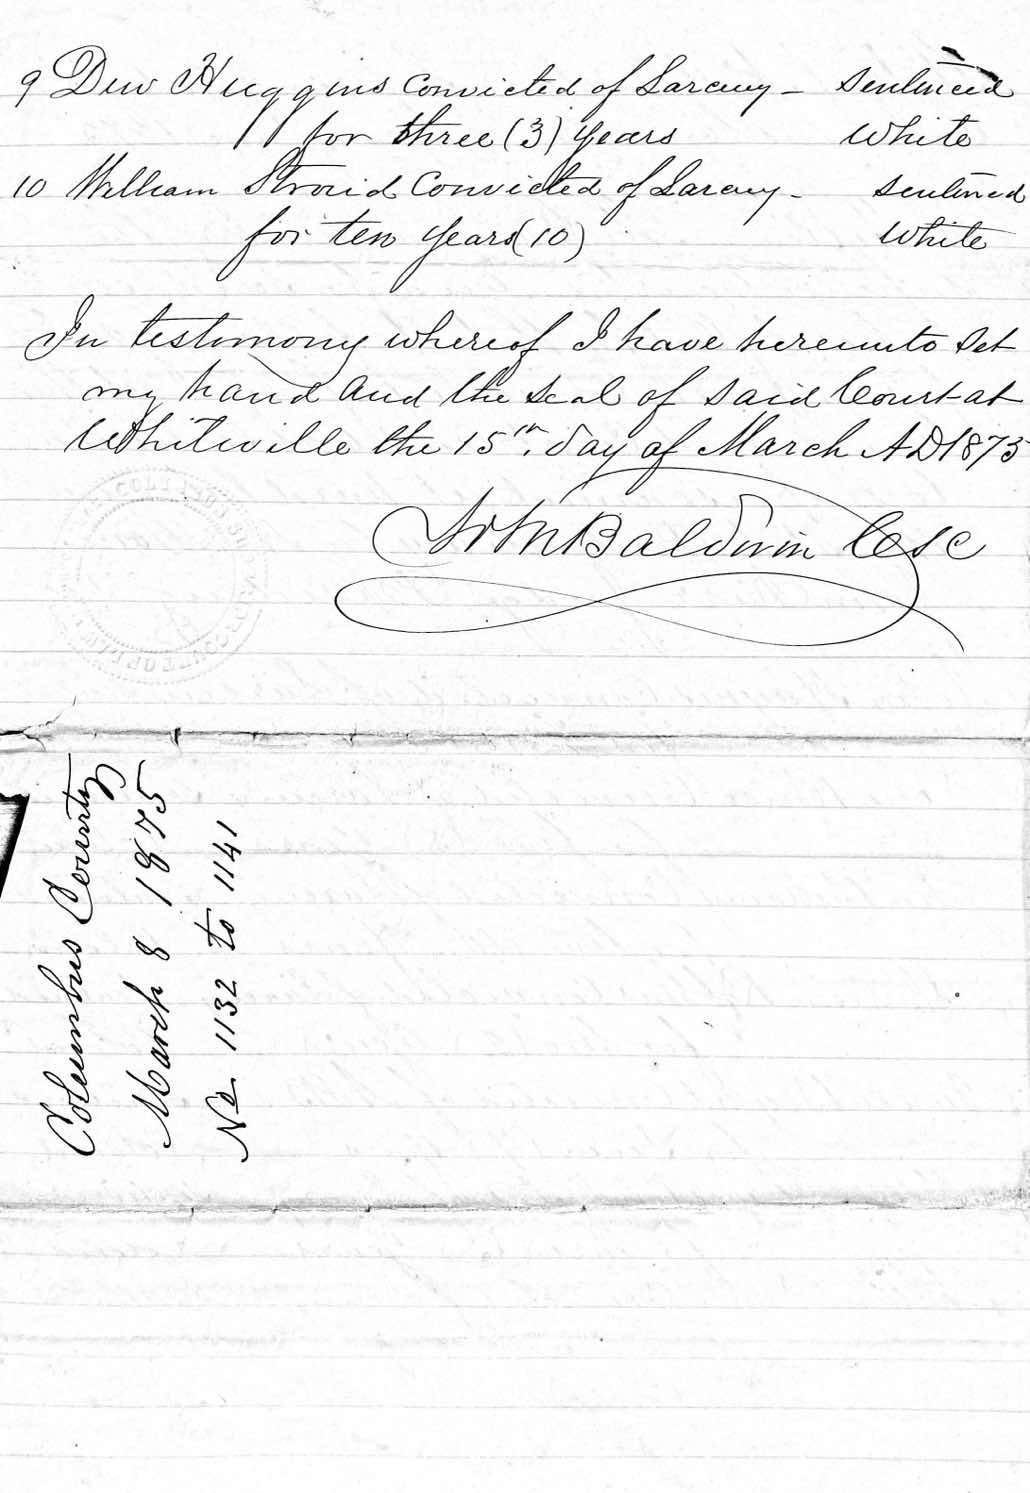 9 Dew Huggins Convicted of Larceny – Sentenced
for three (3) years White
10 William Stroud Convicted of Larceny – Sentenced
for ten years (10) White
In testimony whereof I have hereunto set
my hand and the seal of said Court at
Whiteville the 15th day of March AD 1875
Wm M Baldwin CSC
Columbus County
March 8 1875
No. 1132 to 1141